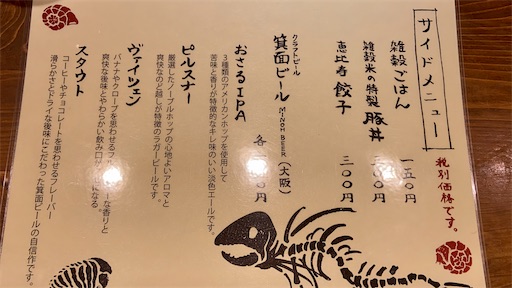 サイドメニュー
税別価格です。
雑穀ごはん 一五〇円
雑穀米の特製 豚丼 三〇〇円
恵比寿 餃子 三〇〇円
クラフトビール
箕面ビール MINOH BEER (大阪) 各 〇〇円
おさるIPA
3種類のアメリカンホップを使用して
苦味と香りが特徴的なキレ味のいい淡色エールです。
ピルスナー
厳選したノーブルホップの心地よいアロマと
爽快なのど越しが特徴のラガービールです。
ヴァイツェン
バナナやクローブを思わせるフ ーな香りと
爽快な後味とやわらかい飲み口 になる。
スタウト
コーヒーやチョコレートを思わせるフレーバー
滑らかさとドライな後味にこだわった箕面ビールの自信作です。